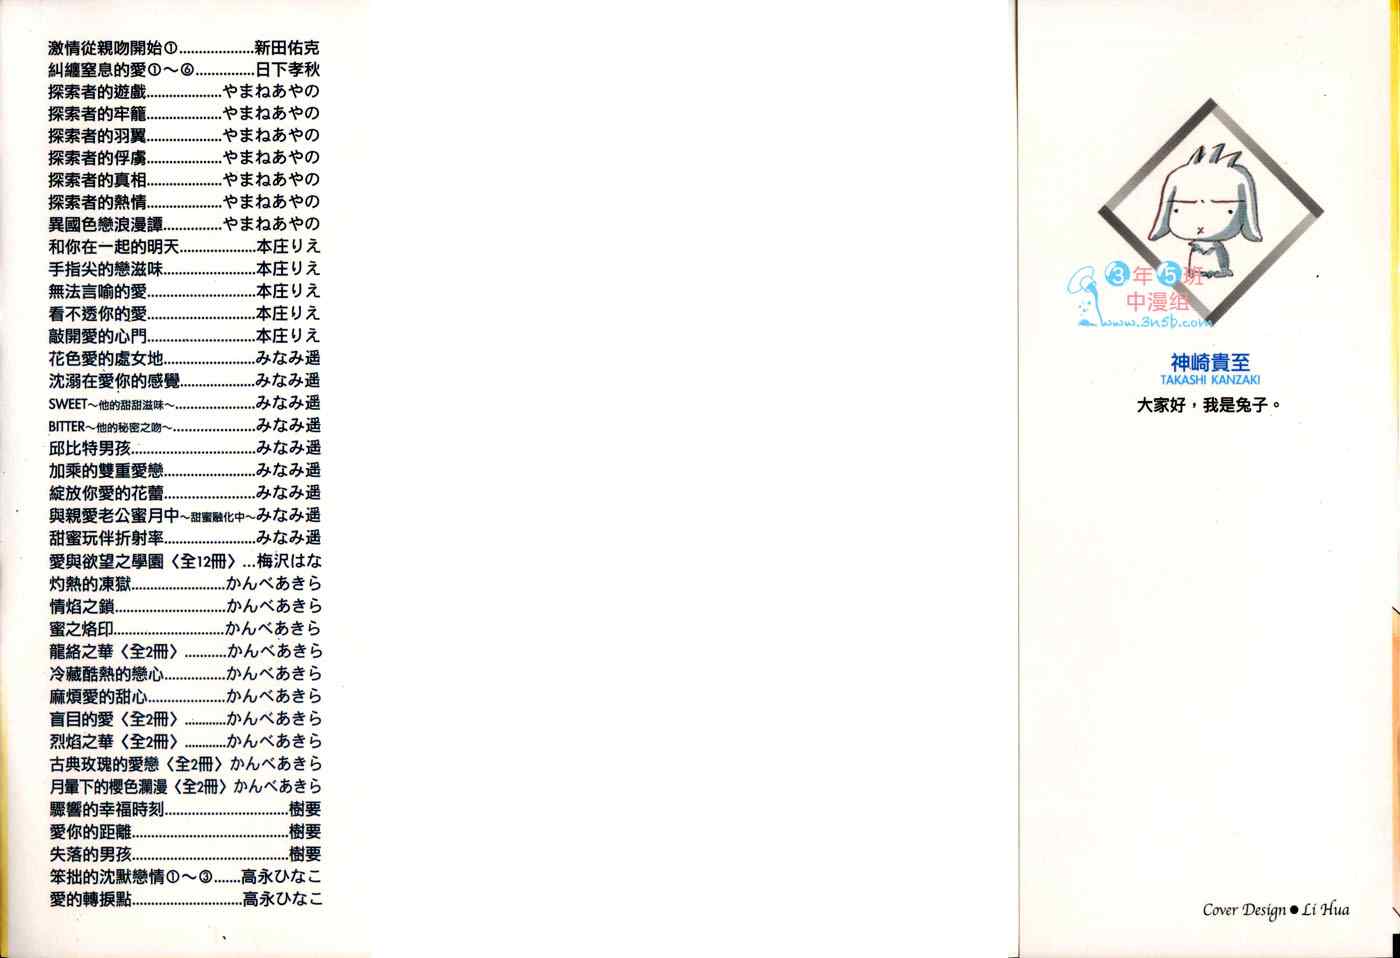 激情從親吻開始①...................新田佑克
糾纏窒息的愛①～⑥...............日下孝秋
探索者的遊戲...................やまねあやの
探索者的牢籠...................やまねあやの
探索者的羽翼...................やまねあやの
探索者的俘虜...................やまねあやの
探索者的真相...................やまねあやの
探索者的熱情...................やまねあやの
異國色戀浪漫譚...............やまねあやの
和你在一起的明天...................本庄りえ
手指尖的戀滋味.......................本庄りえ
無法言喻的愛...........................本庄りえ
看不透你的愛...........................本庄りえ
敲開愛的心門...........................本庄りえ
花色愛的處女地.......................みなみ遥
沈溺在愛你的感覺...................みなみ遥
SWEET～他的甜甜滋味～....................みなみ遥
BITTER～他的秘密之吻～.....................みなみ遥
邱比特男孩...............................みなみ遥
加乘的雙重愛戀.......................みなみ遥
綻放你愛的花蕾.......................みなみ遥
與親愛老公蜜月中～甜蜜融化中～みなみ遥
甜蜜玩伴折射率.......................みなみ遥
愛與欲望之學園〈全12冊〉...梅沢はな
灼熱的凍獄........................かんべあきら
情焰之鎖............................かんべあきら
蜜之烙印............................かんべあきら
龍絡之華〈全2冊〉...........かんべあきら
冷藏酷熱的戀心................かんべあきら
麻煩愛的甜心....................かんべあきら
盲目的愛〈全2冊〉...........かんべあきら
烈焰之華〈全2冊〉...........かんべあきら
古典玫瑰的愛戀〈全2冊〉かんべあきら
月暈下的櫻色瀾漫〈全2冊〉かんべあきら
驟響的幸福時刻...............................樹要
愛你的距離.......................................樹要
失落的男孩.......................................樹要
笨拙的沈默戀情①～③.......高永ひなこ
愛的轉捩點............................高永ひなこ
3年5班
中漫組
www.3n5b.com
神崎貴至
TAKASHI KANZAKI
大家好，我是兔子。
Cover Design●Li Hua